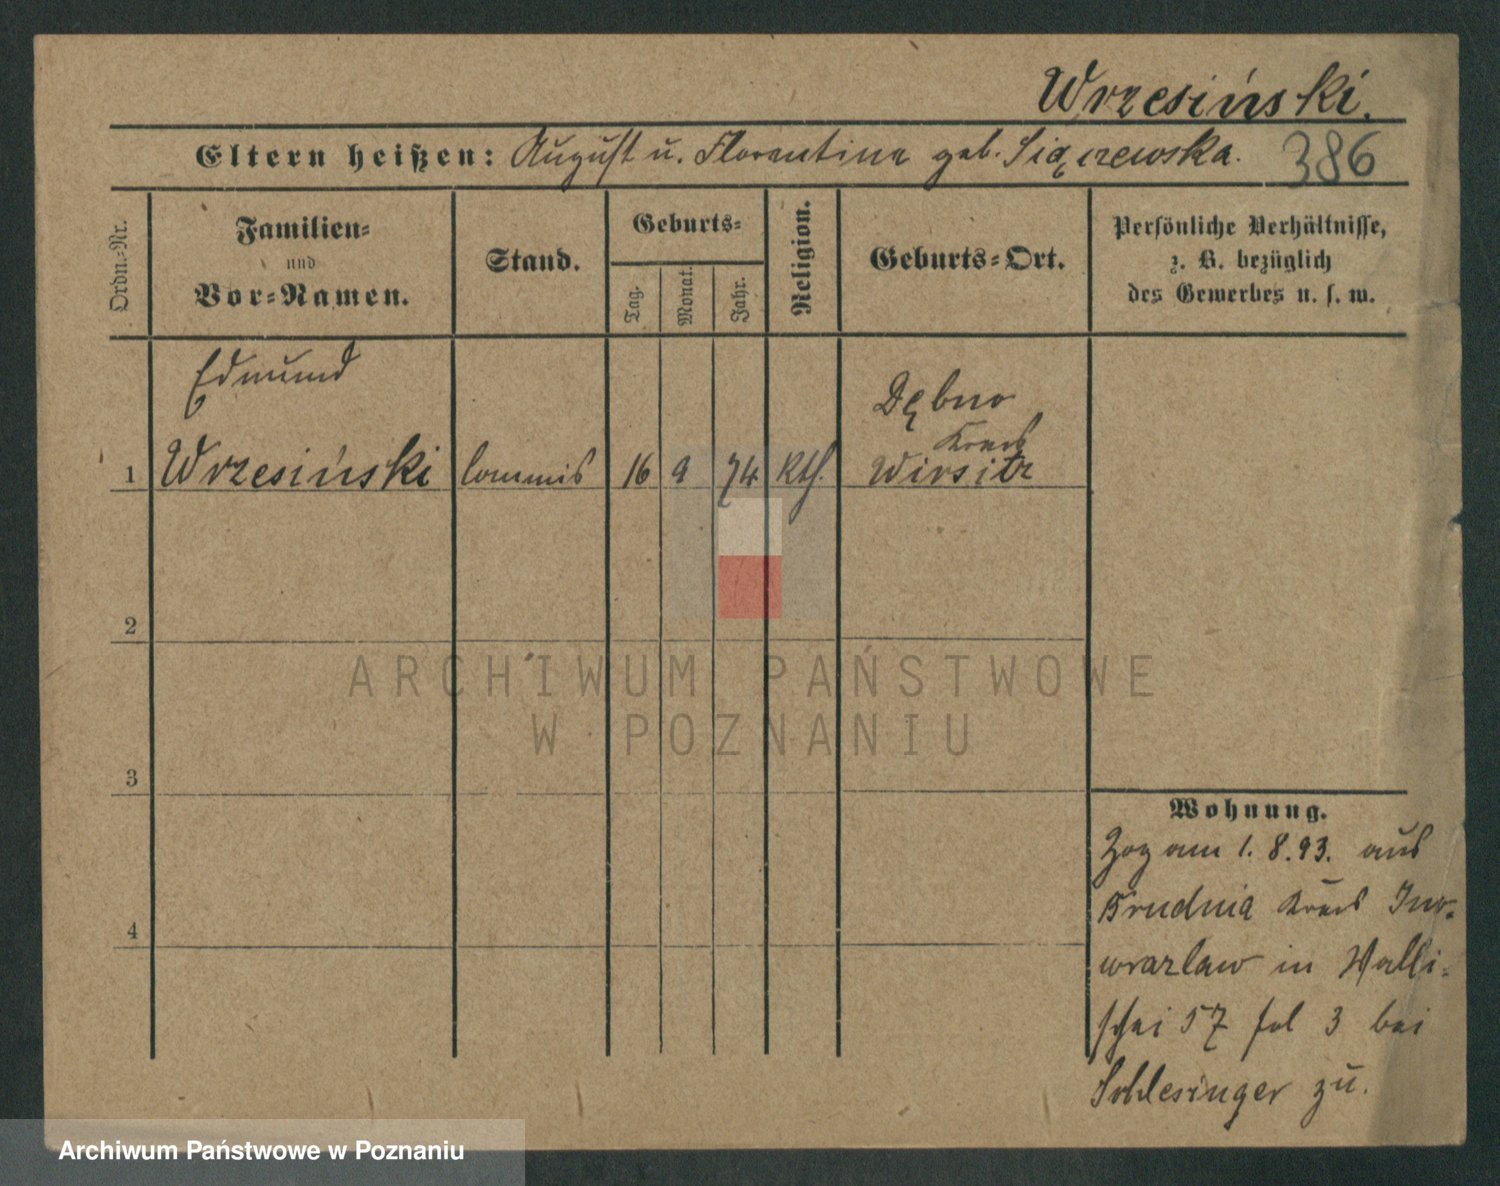 Wrzesiński.
Eltern heißen: August u. Florentine geb.
386
Ordn.-Nr.
Familien-
und
Vor-Namen.
Stand.
Geburts-
Tag.
Monat.
Jahr.
Religion.
Geburts-Ort.
Persönliche Verhältnisse,
z. B. bezüglich
des Gewerbes u. s. w.
Edmund
Dębno
Kreis
1 Wrzesiński Commis 16 9 74 Kth. Wirsitz
2
3
4
Wohnung.
Zog am 1. 8. 93. aus
Trudnia Kreis Ino-
wrazlaw in Walli-
schei 57 fol 3 bei
Schlesinger zu.
ARCHIWUM PAŃSTWOWE
W POZNANIU
Archiwum Państwowe w Poznaniu